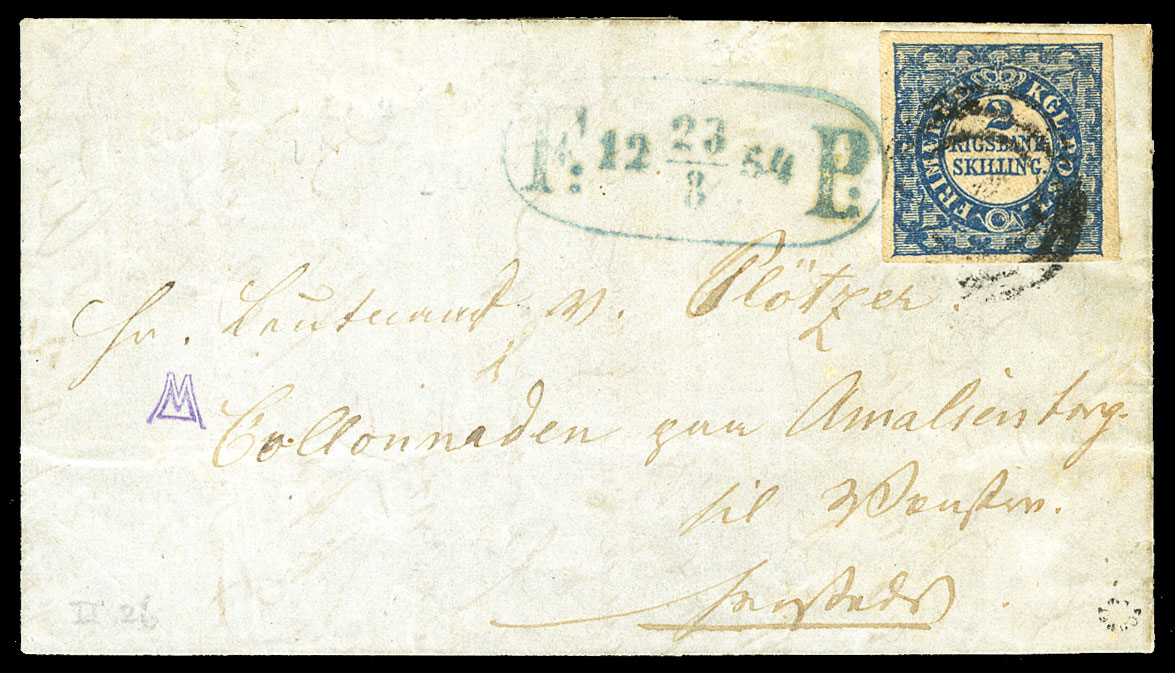 F. 12 23/8 54 P.
KGL POST FRIMÆRKE
2
RIGSBANK
SKILLING.
Hr. Leutnant v. Plötzer.
i
Collonnaden paa Amalientorg.
til Venstre.
Hersteds
M
II 2b